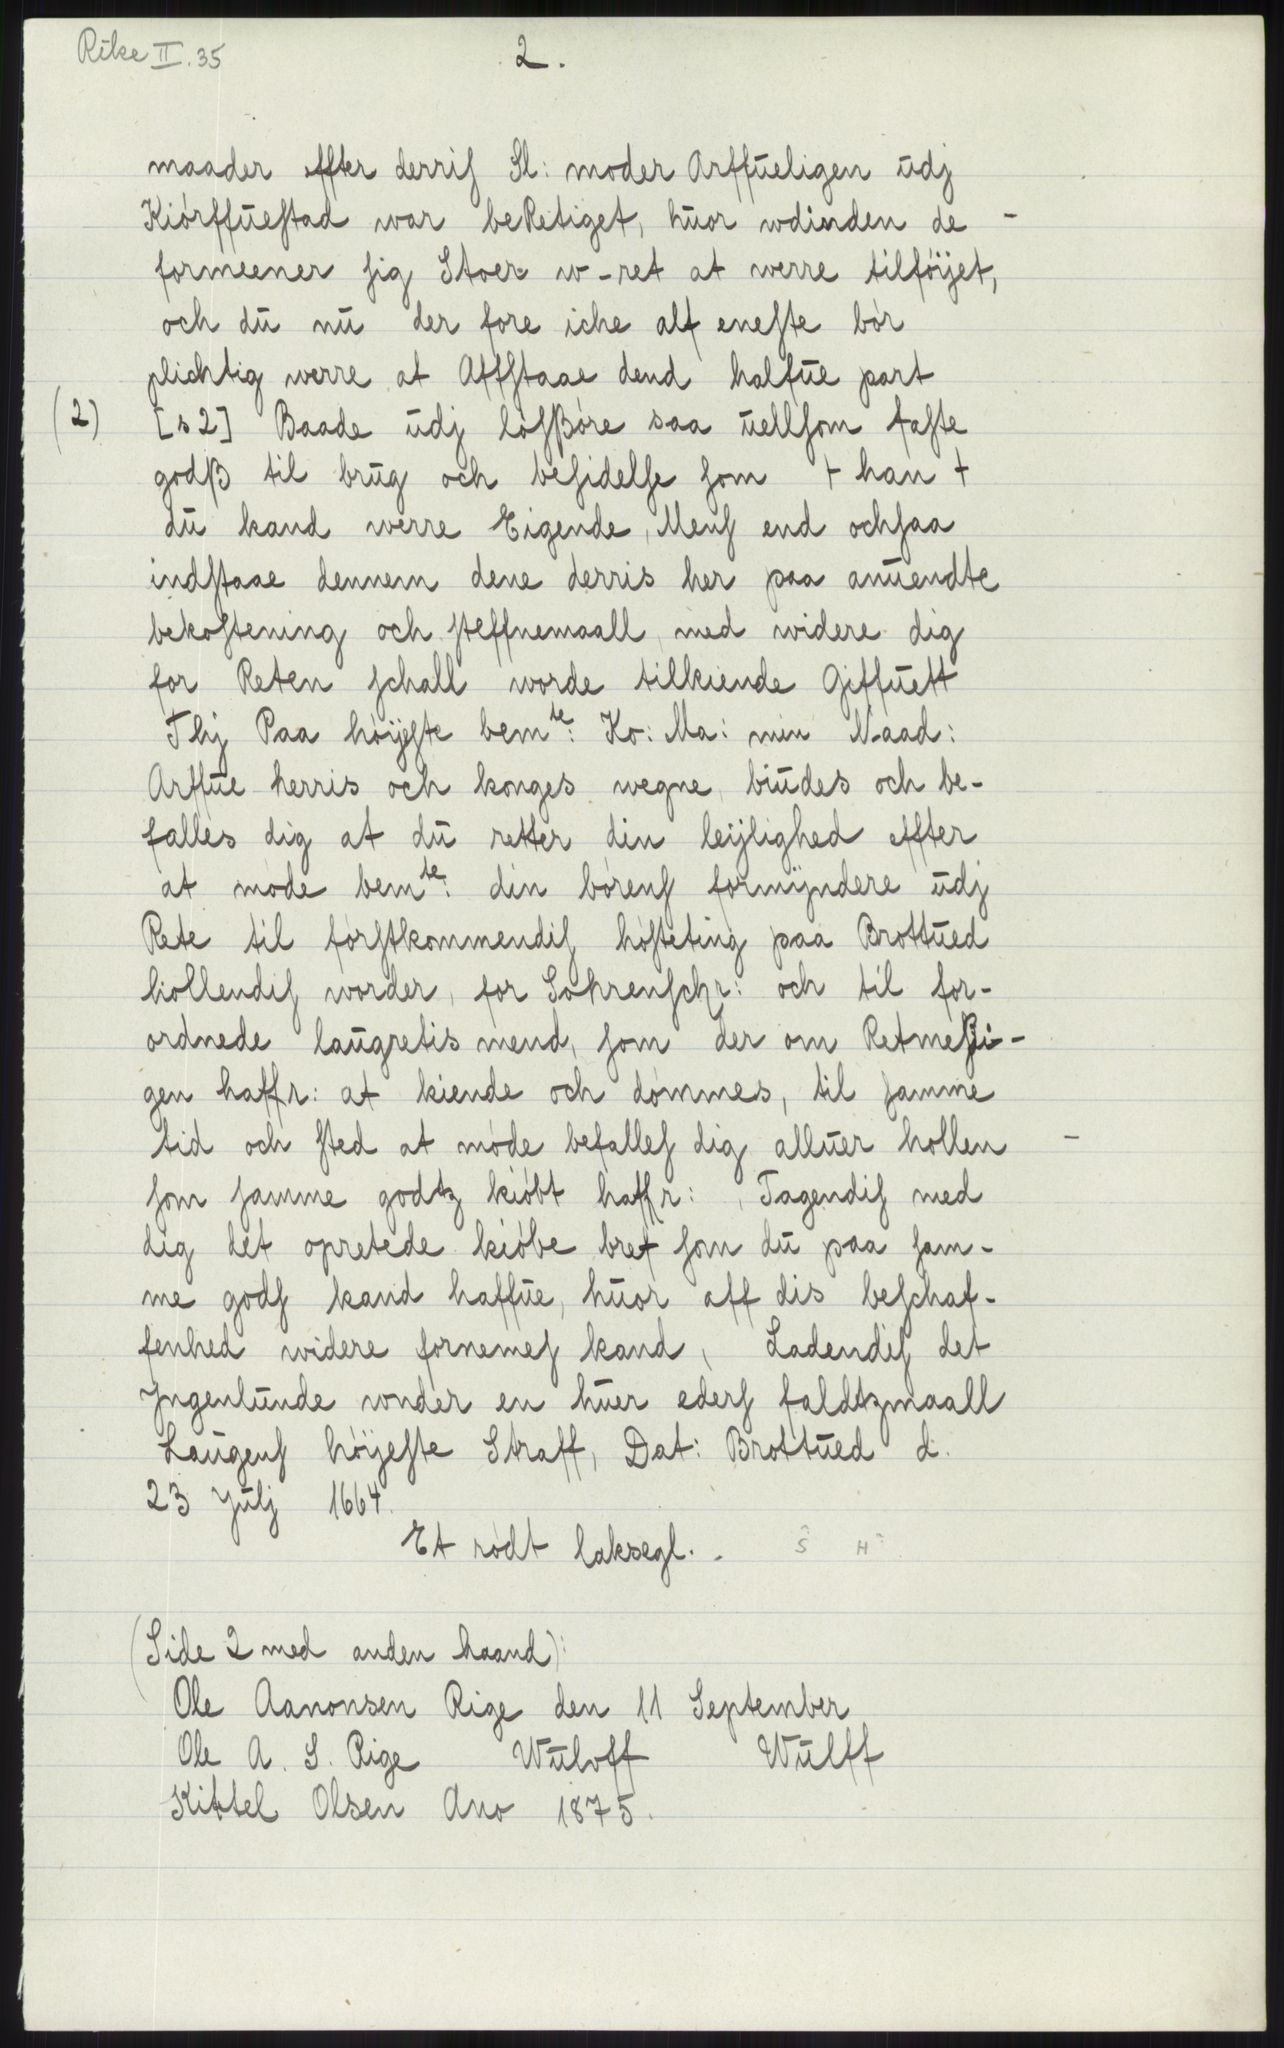 Rike II. 35
2.
maader effter derriſ Sl: moder Arffūeligen ūdj
Kiórffūeſtad war beRetiget, hūor wdinden de -
formeener ſig Stoer w-ret at werre tilföÿet,
och dū nū der fore iche alt eneſte bór
plichtig werre at Affſtaae dend halfūe part
(2) [s 2] Baade ūdj lósſßóre saa ūellſom faſte
godß til brūg och beſidelſe ſom + han +
dū kand werre Eigende, Menſ end ochſaa
indſtaae dennem dene derris her paa anūendte
bekoſtening och ſteffnemaall, med widere dig
for Reten ſchall worde tilkiende Giffūett
Thj Paa höÿeſte bemte: Ko: Ma: min Naad:
Arffūe herris och konges wegne, biūdes och be-
falles dig at dū retter din leÿlighed effter
at móde bemte: din bórenſ formÿndere ūdj
Rete til fórſtkommendiſ hóſteting paa Brottūed
hollendiſ worder, for Sohrenſchr: och til for-
ordnede laūgretis mend, ſom der om Retmeßi-
gen haffr: at kiende och dómmes, til ſamme
tid och ſted at móde befalleſ dig allūer hollen -
ſom ſamme godtz kióbt haffr: , Tagendiſ med
dig det opretede kióbe bref ſom dū paa ſam-
me godſ kand haffūe, hūor aff dis beſchaf-
fenhed widere fornemeſ kand, Ladendiſ det
Jngenlūnde wnder en hūer ederſ faldtzmaall
Laūgenſ höÿeſte Straff, Dat: Brottūed d.
23 Jūlj 1664.
Et rödt laksegl. . S H
(Side 2 med anden haand):
Ole Aanonsen Rige den 11 September
Ole A. S. Rige Wūlvff Wūlff
Kittel Olsen Ano 1875.